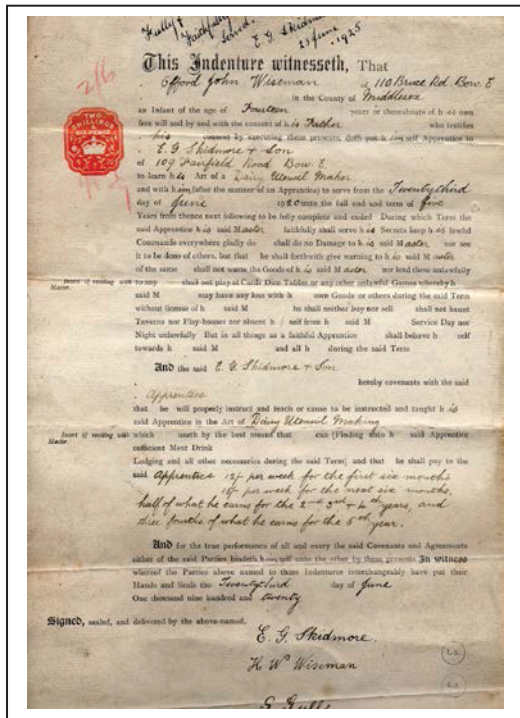 Fully &
Faithfully
Served. E. G. Skidmore
23 June 1925
This Indenture witnesseth, That
2/6
Offord John Wiseman of 110 Bruce Rd. Bow. E
in the County of Middlesex
an Infant of the age of Fourteen years or thereabouts of his own
free will and by and with the consent of his Father who testifies
his consent by executing these presents, doth put himself Apprentice to
TWO
SHILLINGS
SIX PENCE
E. G Skidmore & Son
of 109 Fairfield Road Bow. E.
to learn his Art of a Dairy Utensil Maker
and with him (after the manner of an Apprentice) to serve from the Twentythird
day of June 1920 unto the full end and term of five
Years from thence next following to be fully complete and ended During which Term the
said Apprentice his said Master faithfully shall serve his Secrets keep his lawful
Commands everywhere gladly do shall do no Damage to his said Master nor see
it to be done of others, but that he shall forthwith give warning to his said Master
of the same shall not waste the Goods of his said Master nor lend them unlawfully
Insert if residing with Master.
to any shall not play at Cards Dice Tables or any other unlawful Games whereby h
said M may have any loss with h own Goods or others during the said Term
without license of h said M he shall neither buy nor sell shall not haunt
Taverns nor Play-houses nor absent h self from h said M Service Day nor
Night unlawfully But in all things as a faithful Apprentice shall behave h self
towards h said M and all h during the said Term
And the said E. G. Skidmore & Son
hereby covenants with the said
Apprentice
that he will properly instruct and teach or cause to be instructed and taught his
said Apprentice in the Art of Dairy Utensil Making
Insert if residing with Master.
which useth by the best means that can [Finding unto h said Apprentice
sufficient Meat Drink
Lodging and all other necessaries during the said Term] and that he shall pay to the
said Apprentice 12/- per week for the first six months
15/- per week for the next six months,
half of what he earns for the 2nd 3rd & 4th years, and
three fourths of what he earns for the 5th year.
And for the true performance of all and every the said Covenants and Agreements
either of the said Parties bindeth himself unto the other by these presents In witness
whereof the Parties above named to these Indentures interchangeably have put their
Hands and Seals the Twentythird day of June
One thousand nine hundred and twenty
Signed, sealed, and delivered by the above-named.
E. G. Skidmore.
H W Wiseman
G Gulls